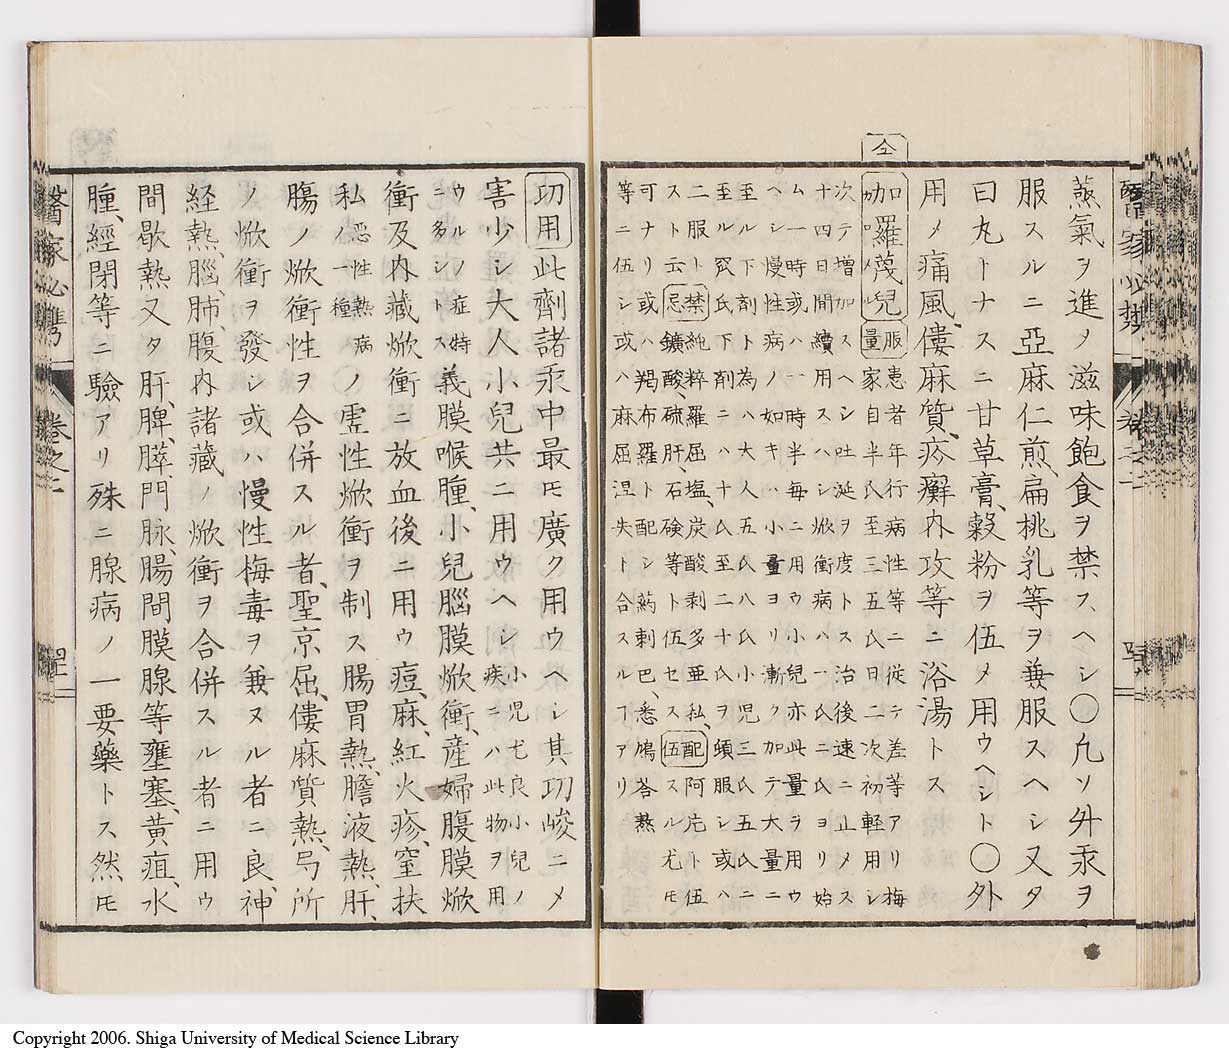 醫家必携
蒸氣ヲ進メ滋味飽食ヲ禁スヘシ〇凡ソ舛汞ヲ
服スルニ亞麻仁煎、扁桃乳等ヲ兼服スヘシ又タ
曰丸トナスニ甘草膏、穀粉ヲ伍メ用ウヘシト〇外
用メ痛風、僂麻質、疥癬内攻等ニ浴湯トス
仝
加羅蔑兒
服量 患者年行病性等ニ従テ差等アリ梅
家自半氏至三五氏日二次初軽用シ
次テ増加スヘシ吐涎ヲ度トス治後速ニ止メス
十四日間續用スハシ焮衝病ハ一氏ニ氏ヨリ始
ム一時或ハ一時半毎ニ用ウ小兒亦此量ラ用ウ
ヘシ慢性病ノ如キハ小量ヨリ漸ク加テ大量ニ
至ル下剤ト為ハ大人五氏八氏小児三氏五氏ニ
至ル窊氏下剤ニハ十氏至二十氏ヲ頓服シ或ハ
二服ト
スト云
禁忌 純粹羅屈塩、炭酸剥多亜私、
鑛酸、硫肝、石鹸等ト伍セス
配伍 阿片ト伍
スル尤モ
可ナリ或ハ羯布羅ト配シ葯剌巴、悉鳩荅熬
等ニ伍シ或ハ麻屈涅失ト合スル丁アリ
功用 此劑諸汞中最モ廣ク用ウヘシ其功峻ニメ
害少シ大人小兒共ニ用ウヘシ
小児尤良小兒ノ
疾ニハ此物ヲ用
ウルノ症特
ニ多シトス
義膜喉腫、小兒腦膜焮衝、産婦腹膜焮
衝及内藏焮衝ニ放血後ニ用ウ痘、麻、紅火疹、窒扶
私ノ
悪性熱病
一種
ノ虗性焮衝ヲ制ス腸胃熱、膽液熱、肝、
腸ノ焮衝性ヲ合併スル者、聖京屈、僂麻質熱、局所
ノ焮衝ヲ發シ或ハ慢性梅毒ヲ兼ヌル者ニ良、神
経熱、腦、肺、腹内諸藏ノ焮衝ヲ合併スル者ニ用ウ
間歇熱又タ肝、脾、膵、門脉、腸間膜腺等壅塞、黄疸、水
腫、經閉等ニ驗アリ殊ニ腺病ノ一要藥トス然モ
醫家必携
卷之二